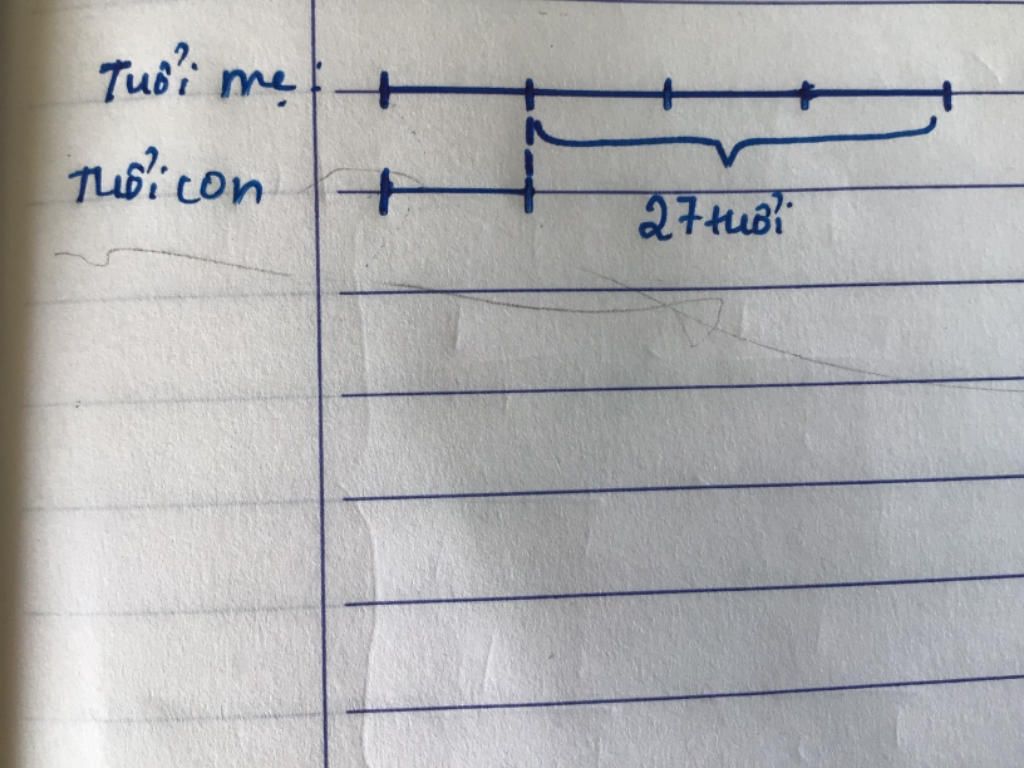 Tuổi mẹ:
Tuổi con
27 tuổi